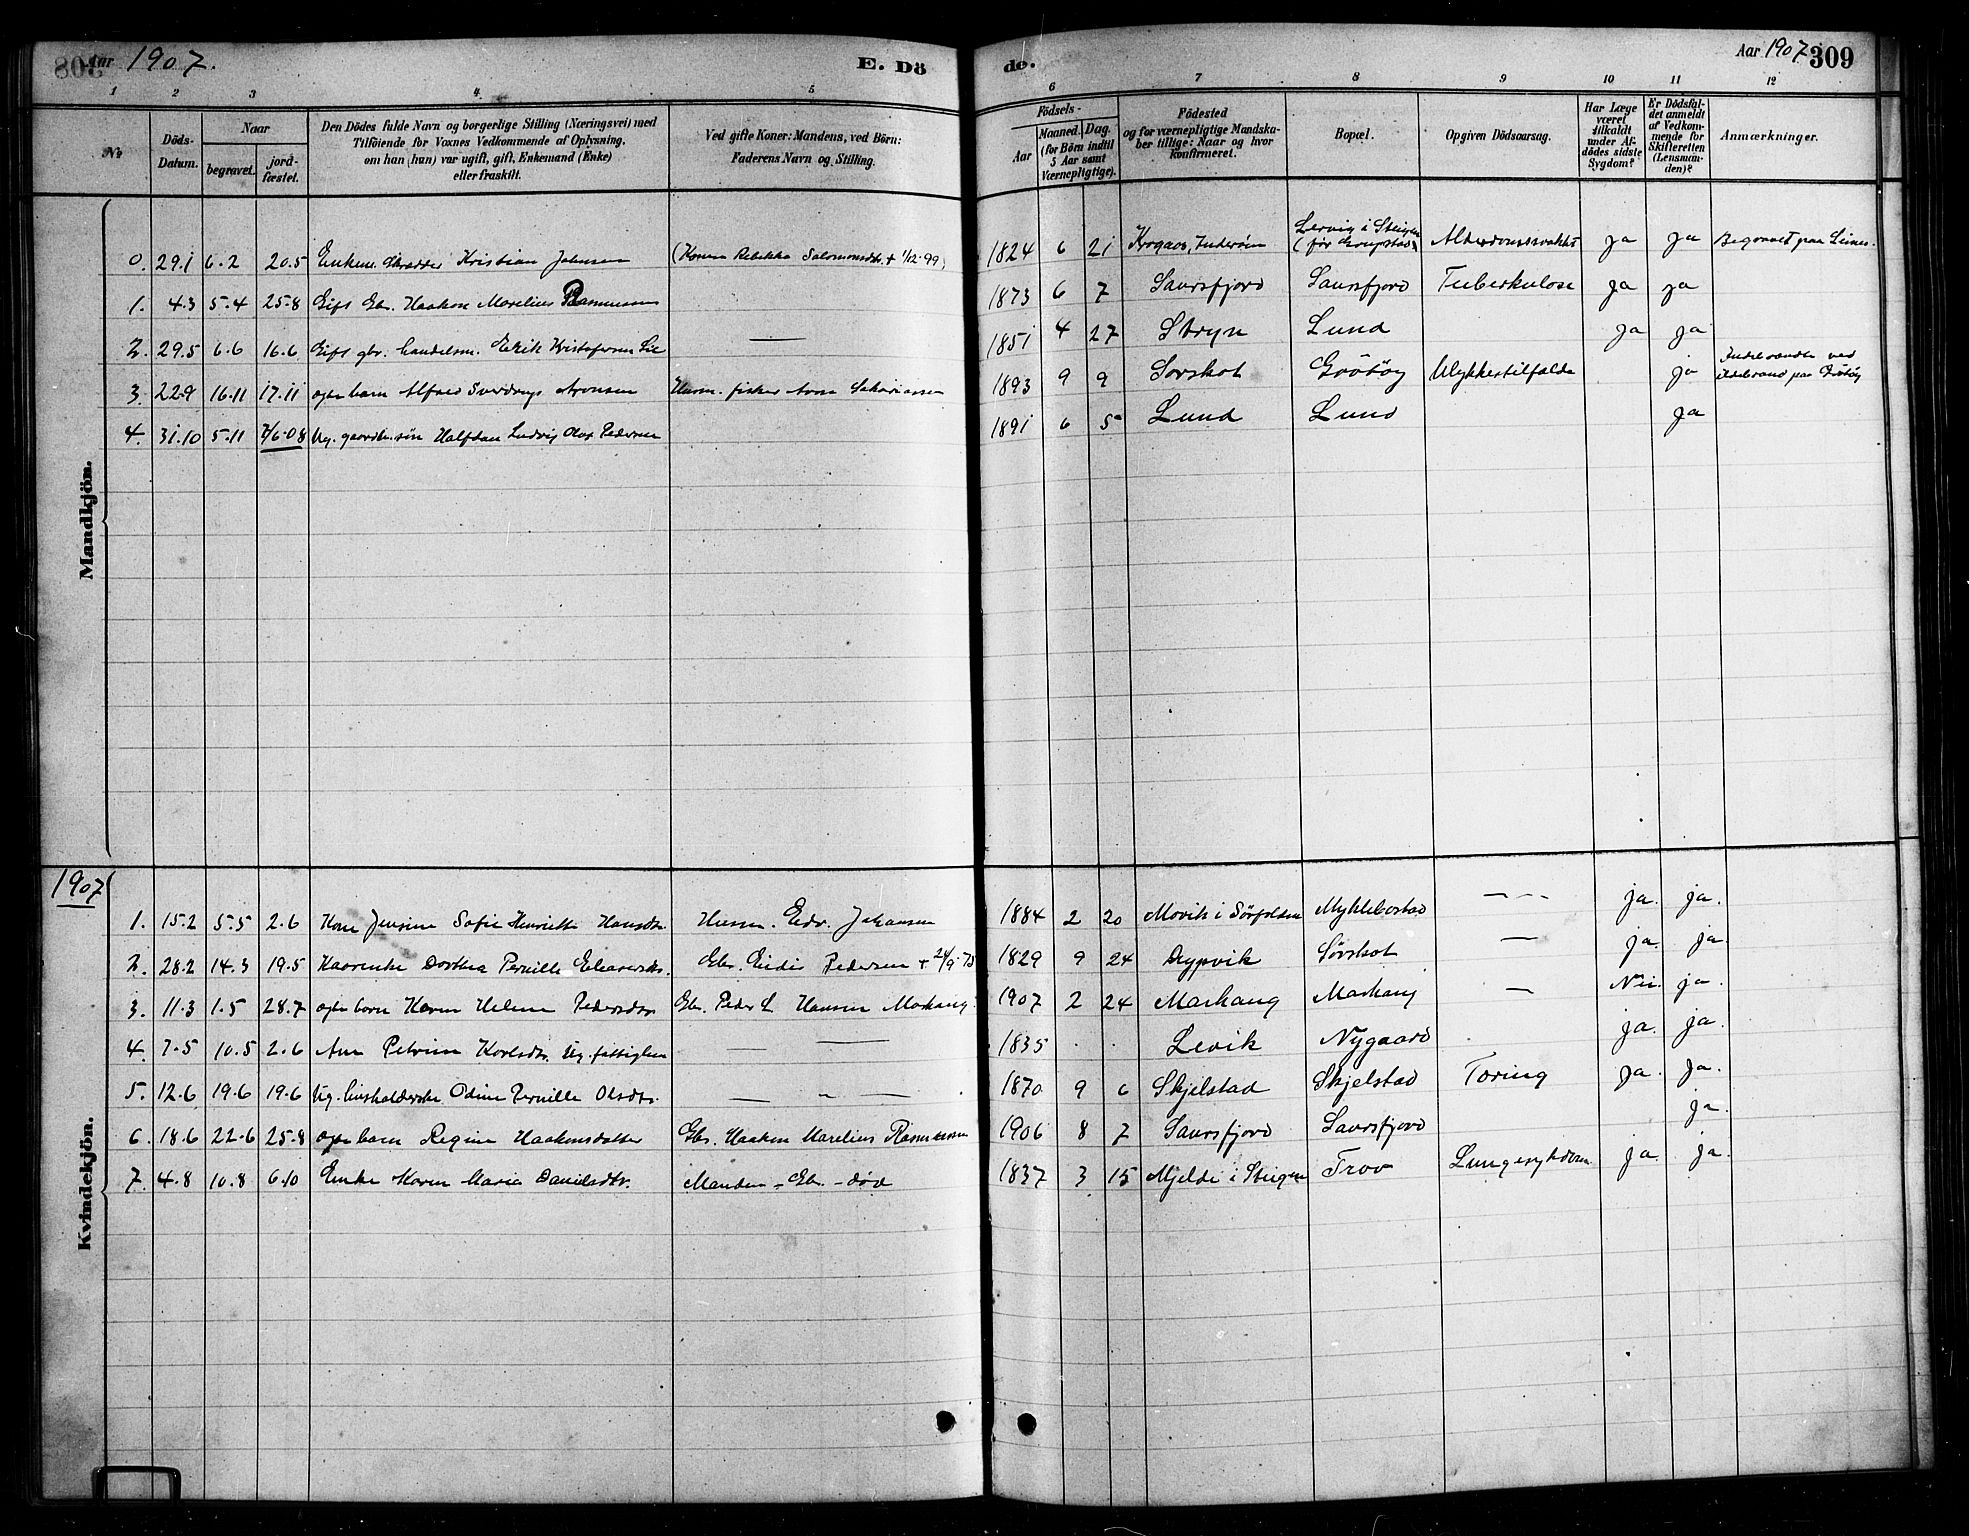 Aar 1907.
E. Dö
de.
Aar 1907 309
1 2 3 4 5 6 7 8 9 10 11 12
No
Döds-Datum.
Naar
begravet.
jord-fæstet.
Den Dödes fulde Navn og borgerlige Stilling (Næringsvei) med
Tilföiende for Voxnes Vedkommende af Oplysning,
om han (hun) var ugift, gift, Enkemand (Enke)
eller fraskilt.
Ved gifte Koner: Mandens, ved Börn:
Faderens Navn og Stilling.
Födsels-
Aar
Maaned. Dag.
(for Börn indtil
5 Aar samt
Værnepligtige).
Födested
og for værnepligtige Mandska-
ber tillige: Naar og hvor
konfirmeret.
Bopæl.
Opgiven Dödsaarsag.
Har Læge
været
tilkaldt
under Af-
dödes sidste
Sygdom?
Er Dödsfal-
det anmeldt
af Vedkom-
mende for
Skifteretten
(Lensman-
den)?
Anmærkninger.
Mandkjön.
0. 29.1 6.2 20.5 Enkem. Skrædder Kristian Johnsen (Konen Rebekka Salomonsdtr. + 1/12-99) 1824 6 21 Krogaas, Inderöen Lervig i Steigen (för Grupstad) Alderdomssvakhet ja ja Begravet paa Leines.
1. 4.3 5.4 25.8 Gift Gbr. Haakon Marelius Rasmussen 1873 6 7 Saursfjord Saursfjord Tuberkulose ja ja
2. 29.5 6.6 16.6 Gift gbr. handelsm. Erik Kristofersen Lie — 1851 4 27 Stryn Lund ja ja
3. 22.9 16.11 17.11 ogte barn Alfred Sverdrup Aronsen Husm. fisker Aron Sakariassen 1893 9 9 Sorskot Grötöy Ulykkestilfælde ja Indebrændte ved ildebrand paa Grötöy
4. 31.10 5.11 7/6-08 Ug. gaardbr. sön Halfdan Ludvig Olav Pedersen 1891 6 5 Lund Lund ja
1907
Kvindekjön.
1. 15.2 5.5 2.6 Kone Jensine Sofie Henriette Hansdtr. Husm. Edv. Johansen 1884 2 20 Movik i Sörfolden Myklebostad — ja. ja.
2. 28.2 14.3 19.5 Kaarenke Dorthea Pernille Eleasersdtr. Gbr. Eidis Pedersen + 24/9-75 1829 9 24 Dypvik Sörskot — ja. ja.
3. 11.3 1.5 28.7 ogte barn Karen Helene Pedersdtr. Gbr. Peder L Hansen Markaug. 1907 2 24 Markaug Markaug — Nei. ja.
4. 7.5 10.5 2.6 Ane Petrine Karlsdtr. Ug. fattiglem — — 1835 . . Levik Nygaard . ja. ja.
5. 12.6 19.6 19.6 Ug. husholderske Odine Pernille Olsdtr. — " — 1870 9 6 Skjelstad Skjelstad Tæring ja. ja.
6. 18.6 22.6 25.8 ogte barn Regine Haakonsdatter Gbr. Haakon Marelius Rasmussen 1906 8 7 Saursfjord Saursfjord ja.
7. 4.8 10.8 6.10 Enke Karen Maria Danielsdtr. Manden - Gbr. - död 1837 3 15 Mjelde i Steigen Trov Lungesykdom ja. ja.